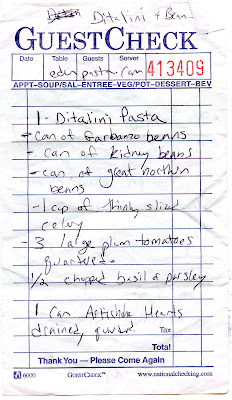 Ditalini + Bean
GUESTCHECK
Date Table Guests Server
413409
APPT-SOUP/SAL-ENTREE-VEG/POT-DESSERT-BEV
1 - Ditalini Pasta
- Can of Garbanzo beans
- can of kidney beans
- can of great northern
beans
- 1 cup of thinly sliced
celery
- 3 large plum tomatoes
quartered
1/2 chopped basil & parsley
1 Can Artichoke Hearts
drained, quart
Tax
Total
Thank You — Please Come Again
6000 GUESTCHECK™ www.nationalchecking.com